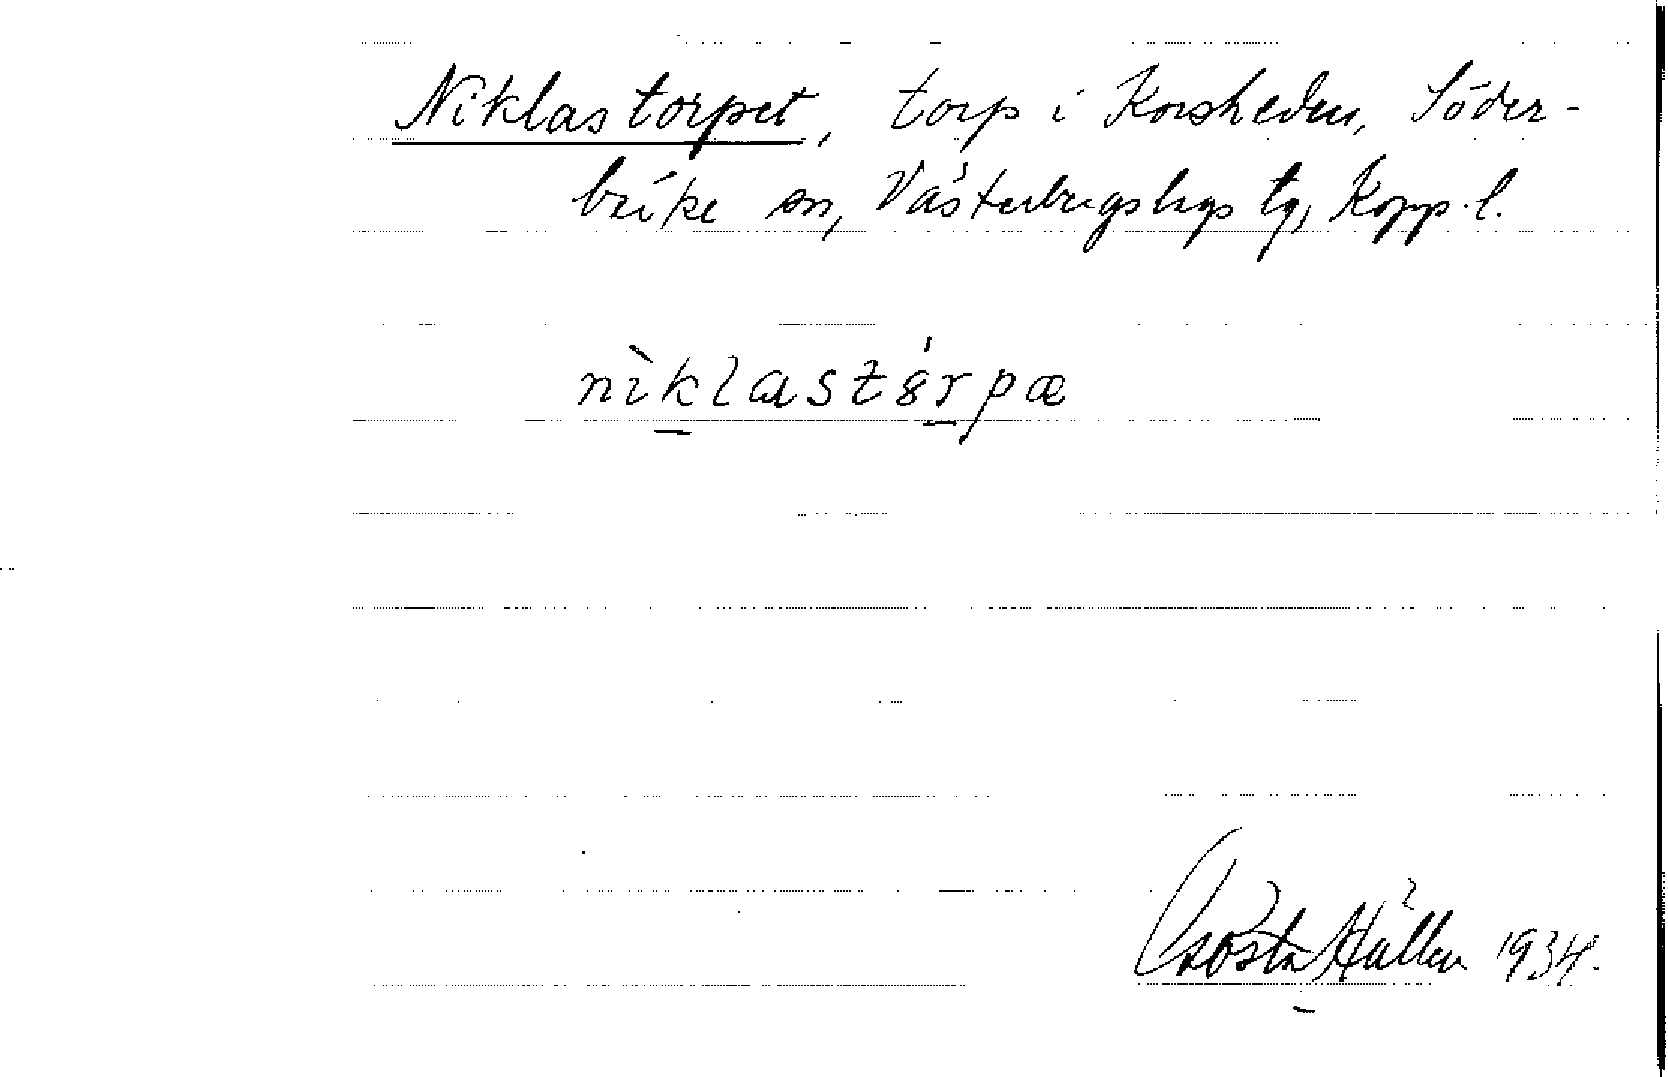 Niklastorpet, torp i Korsheden, Söder-
bärke sn, Västerbergslags tg, Kopp. l.
nìklastårpæ
Gösta Hällen 1934.